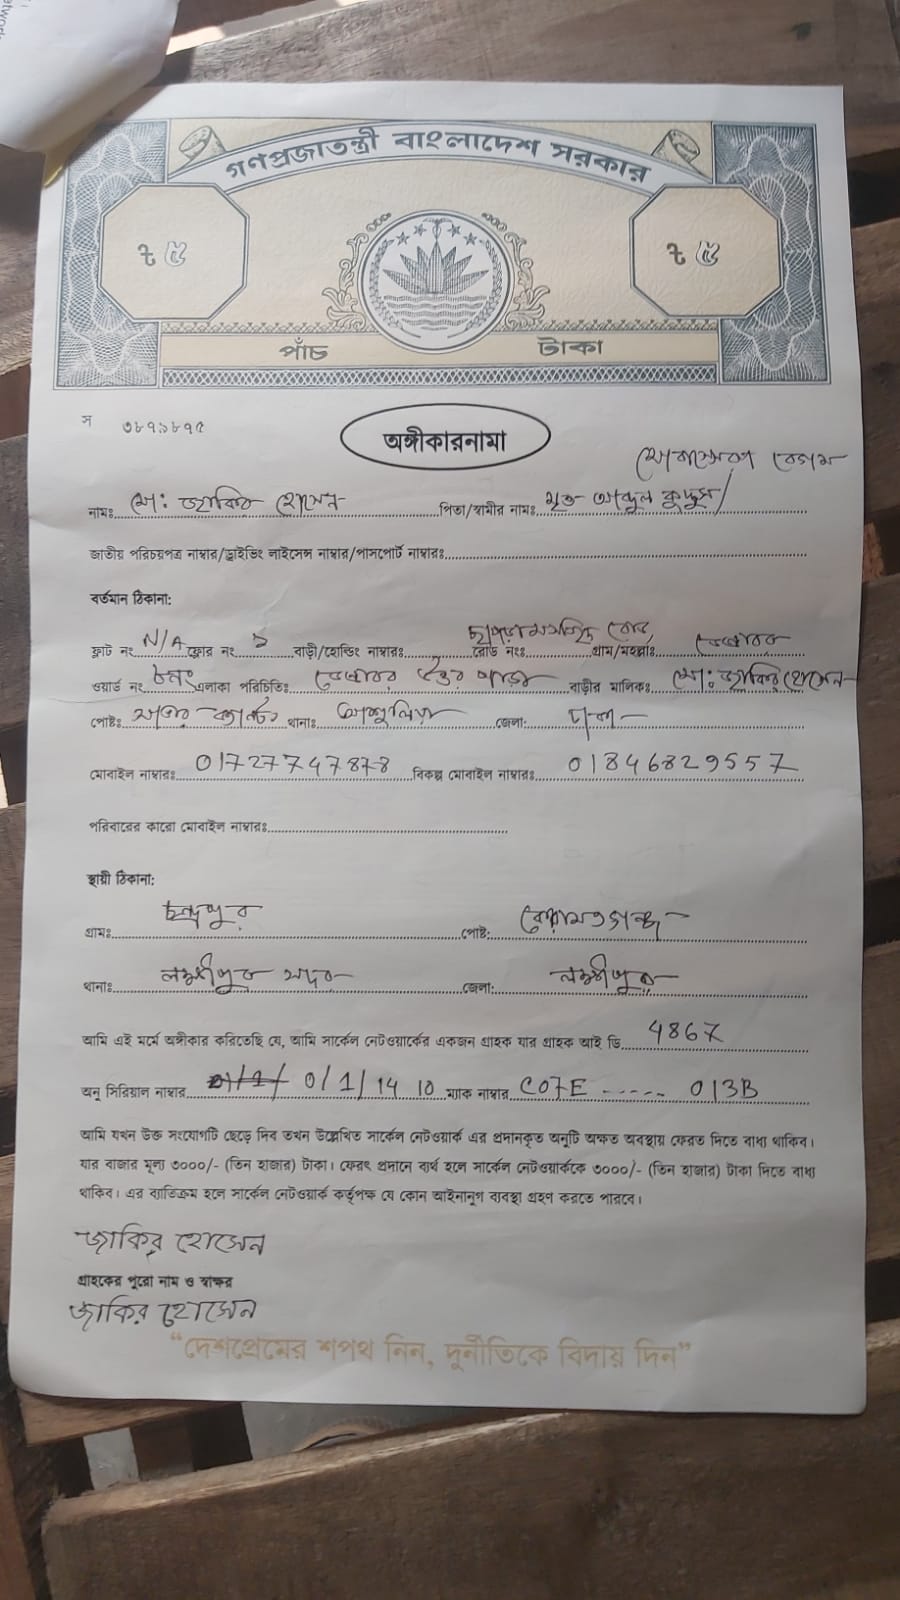 গণপ্রজাতন্ত্রী বাংলাদেশ সরকার
৳ ৫ ৳ ৫
পাঁচ টাকা
স ৩৮৭১৮৭৫
অঙ্গীকারনামা
বেগম
নামঃ মো: জাকির হোসেন পিতা/স্বামীর নাম: মৃত আব্দুল কুদ্দুস/
জাতীয় পরিচয়পত্র নাম্বার/ড্রাইভিং লাইসেন্স নাম্বার/পাসপোর্ট নাম্বারঃ
বর্তমান ঠিকানা:
ফ্লাট নং N/A ফ্লোর নং ১ বাড়ী/হোল্ডিং নাম্বারঃ রোড নং: রোড গ্রাম/মহল্লাঃ
ওয়ার্ড নং ৮নং এলাকা পরিচিতিঃ উত্তর পাড়া বাড়ীর মালিকঃ মো: জাকির হোসেন
পোষ্টঃ থানাঃ আশুলিয়া জেলা: ঢাকা
মোবাইল নাম্বারঃ 01727747878 বিকল্প মোবাইল নাম্বারঃ 01846829557
পরিবারের কারো মোবাইল নাম্বারঃ
স্থায়ী ঠিকানা:
গ্রামঃ চন্দ্রপুর পোষ্ট:
থানাঃ লক্ষ্মীপুর সদর জেলা: লক্ষ্মীপুর
আমি এই মর্মে অঙ্গীকার করিতেছি যে, আমি সার্কেল নেটওয়ার্কের একজন গ্রাহক যার গ্রাহক আই ডি 4867
অনু সিরিয়াল নাম্বার 0/1/14 10 ম্যাক নাম্বার C07E ----- 013B
আমি যখন উক্ত সংযোগটি ছেড়ে দিব তখন উল্লেখিত সার্কেল নেটওয়ার্ক এর প্রদানকৃত অনুটি অক্ষত অবস্থায় ফেরত দিতে বাধ্য থাকিব।
যার বাজার মূল্য ৩০০০/- (তিন হাজার) টাকা। ফেরৎ প্রদানে ব্যর্থ হলে সার্কেল নেটওয়ার্ককে ৩০০০/- (তিন হাজার) টাকা দিতে বাধ্য
থাকিব। এর ব্যতিক্রম হলে সার্কেল নেটওয়ার্ক কর্তৃপক্ষ যে কোন আইনানুগ ব্যবস্থা গ্রহণ করতে পারবে।
জাকির হোসেন
গ্রাহকের পুরো নাম ও স্বাক্ষর
জাকির হোসেন
“দেশপ্রেমের শপথ নিন, দুর্নীতিকে বিদায় দিন”